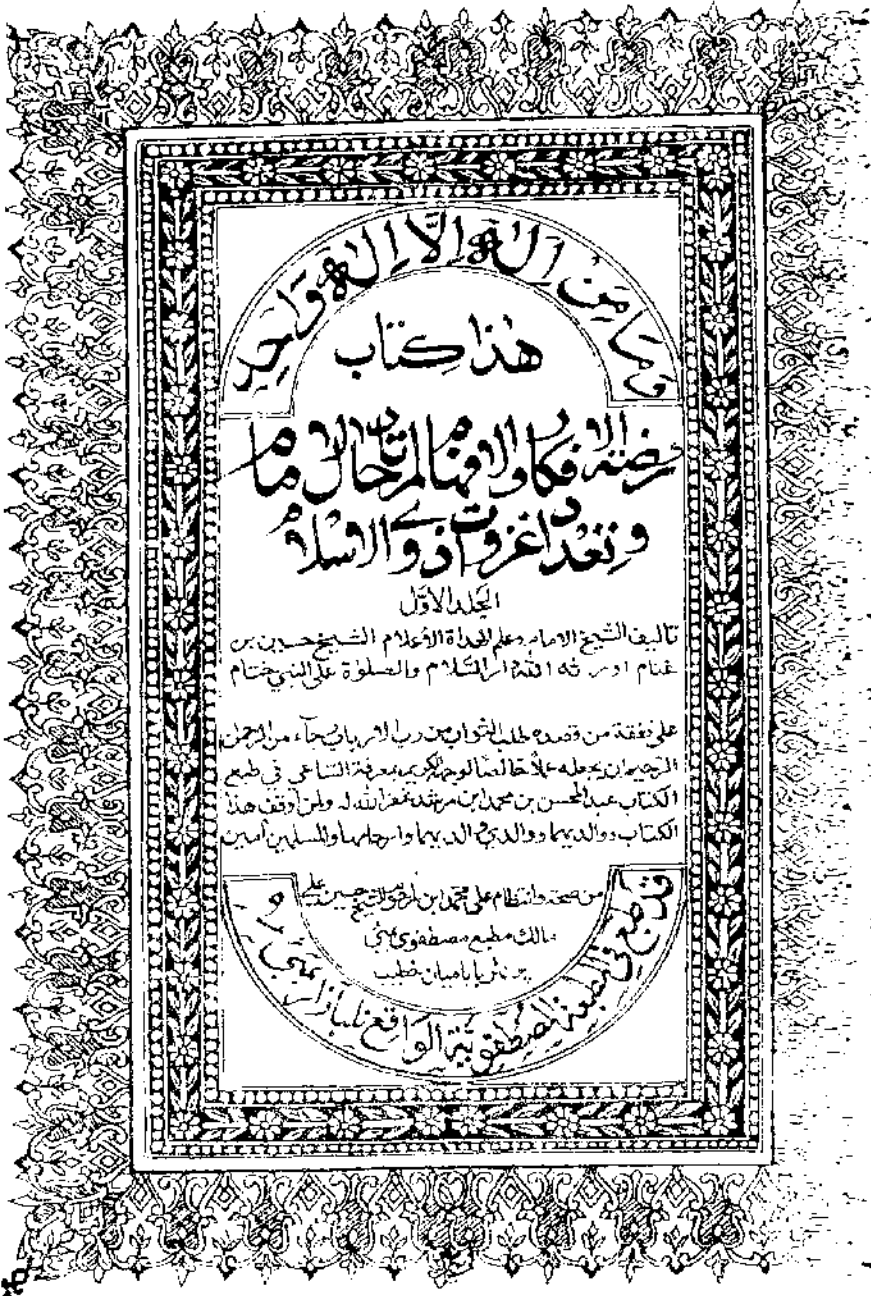 وَمَا مِنْ إِلٰهٍ إِلَّا إِلٰهٌ وَاحِدٌ
هذا كتاب
روضة الافكار والافهام لمرتاد حال الامام
وتعداد غزوات ذوي الاسلام
الجلد الاول
تاليف الشيخ الامام وعلم الهداة الأعلام الشيخ حسين بن
غنام اورثه الله دار السلام والصلوٰة على النبي ختام
على نفقة من قصده طلب الثواب من رب الارباب رجآء من الرحمن
الرحيم ان يجعله عملا خالصا لوجهه الكريم بمعرفة الساعى فى طبع
الكتاب عبد المحسن بن محمد ابن مرشد غفر الله له ولمن أوقف هذا
الكتاب ووالديهما ووالدي والديهما وارحامهما والمسلمين أمين
من صحة وانتظام على محمد ابن المرحوم الشيخ حسين على
مالك مطبع مصطفوى بمبئي
پرنٹر بابا ميان خطيب
قد طبع فى المطبعة المصطفوية الواقع بلبازار بمبئي